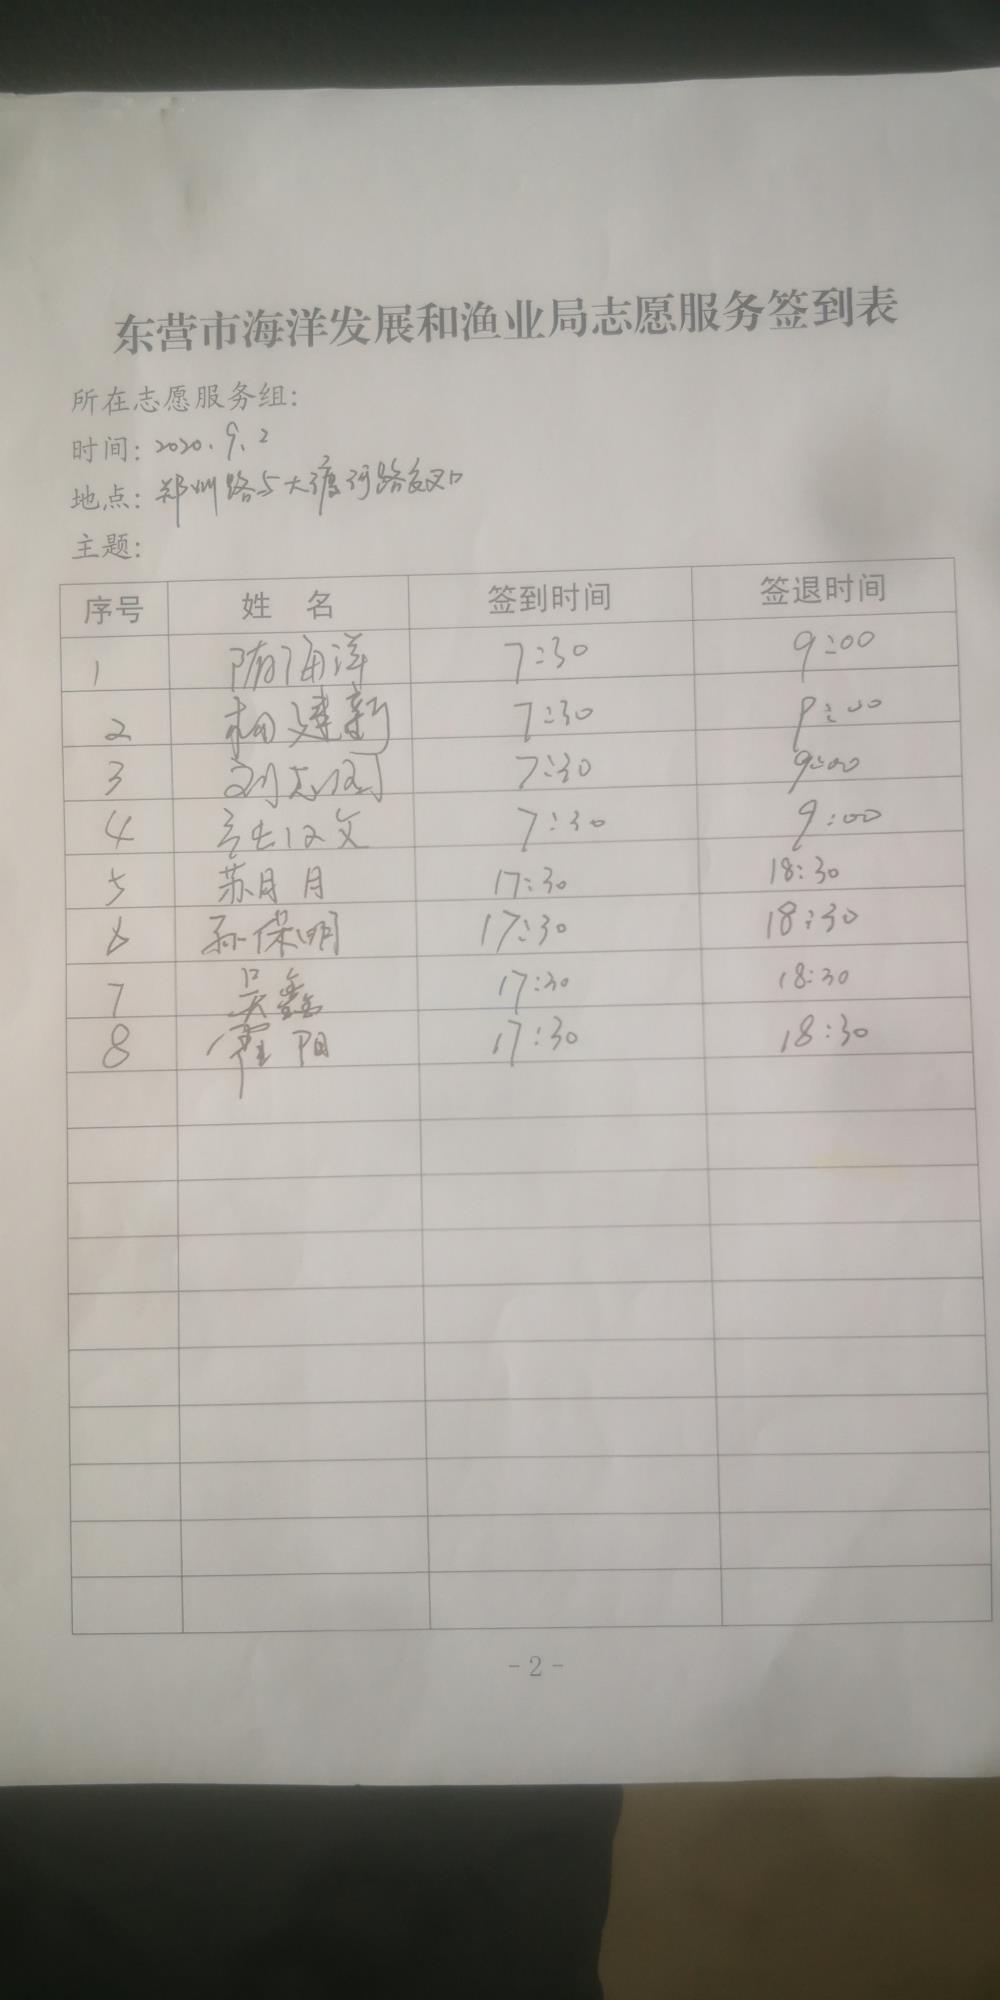 东营市海洋发展和渔业局志愿服务签到表
所在志愿服务组:
时间: 2020.9.2
地点: 郑州路与大渡河路交叉口
主题:
序号 姓 名 签到时间 签退时间
1 隋海洋 7:30 9:00
2 相建新 7:30 9:00
3 刘志国 7:30 9:00
4 汉文 7:30 9:00
5 苏月月 17:30 18:30
6 孙保明 17:30 18:30
7 吴鑫 17:30 18:30
8 霍阳 17:30 18:30
- 2 -